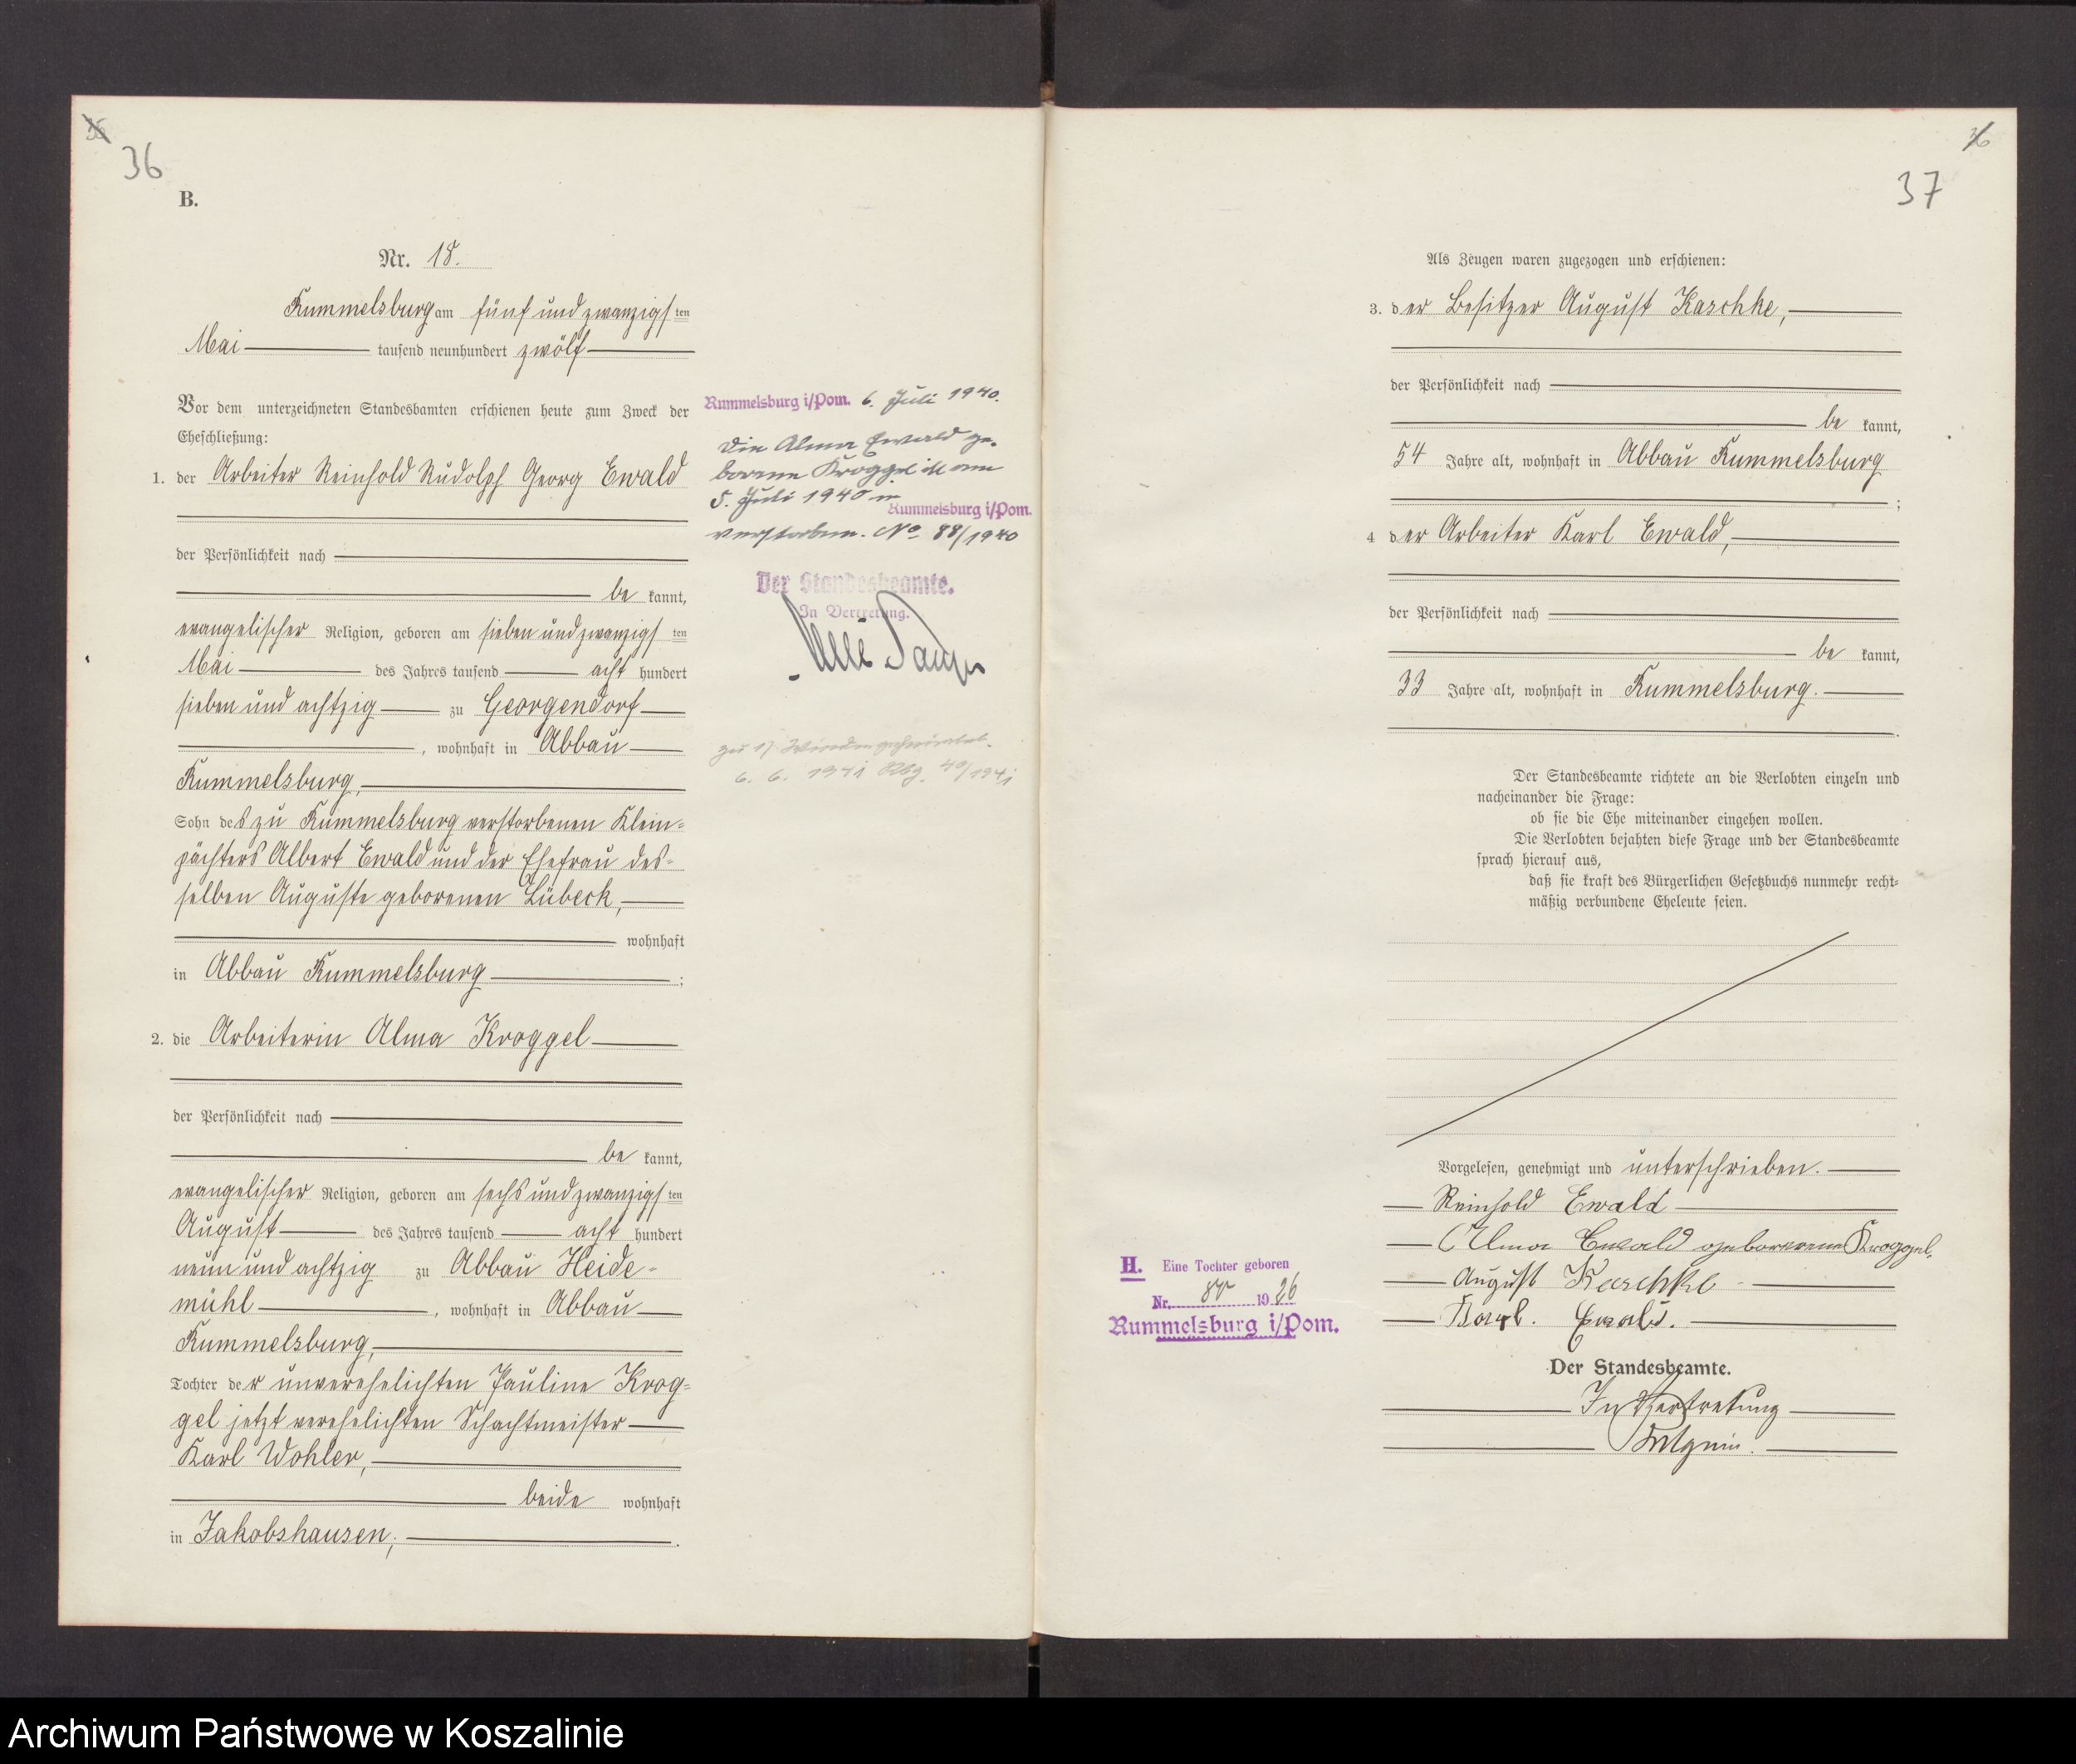 36
B.
Nr. 18.
Rummelsburg am fünf und zwanzigsten
Mai tausend neunhundert zwölf
Vor dem unterzeichneten Standesbamten erschienen heute zum Zweck der
Eheschließung:
1. der Arbeiter Reinhold Rudolph Georg Ewald
der Persönlichkeit nach
be kannt,
evangelischer Religion, geboren am sieben und zwanzigsten
Mai des Jahres tausend acht hundert
sieben und achtzig zu Georgendorf
, wohnhaft in Abbau
Rummelsburg,
Sohn des zu Rummelsburg verstorbenen Klein=
pächters Albert Ewald und der Ehefrau des=
selben Auguste geborenen Lübeck,
wohnhaft
in Abbau Rummelsburg ;
2. die Arbeiterin Alma Kroggel
der Persönlichkeit nach
be kannt,
evangelischer Religion, geboren am sechs und zwanzigsten
August des Jahres tausend acht hundert
neun und achtzig zu Abbau Heide-
mühl , wohnhaft in Abbau
Rummelsburg,
Tochter der unverehelichten Pauline Krog=
gel jetzt verehelichten Schachtmeister
Karl Wohler,
beide wohnhaft
in Jakobshausen; .
Rummelsburg i/Pom. 6. Juli 1940.
Die Alma Ewald ge-
borene Kroggel ist am
5. Juli 1940 in
Rummelsburg i/Pom.
verstorben. No. 88/1940
Der Standesbeamte.
In Vertretung.
zu 1)
6. 6. 1941 40/1941
37
Als Zeugen waren zugezogen und erschienen:
3. der Besitzer August Kaschke,
der Persönlichkeit nach
be kannt,
54 Jahre alt, wohnhaft in Abbau Rummelsburg
;
4 der Arbeiter Karl Ewald,
der Persönlichkeit nach
be kannt,
33 Jahre alt, wohnhaft in Rummelsburg.
.
Der Standesbeamte richtete an die Verlobten einzeln und
nacheinander die Frage:
ob sie die Ehe miteinander eingehen wollen.
Die Verlobten bejahten diese Frage und der Standesbeamte
sprach hierauf aus,
daß sie kraft des Bürgerlichen Gesetzbuchs nunmehr recht=
mäßig verbundene Eheleute seien.
Vorgelesen, genehmigt und unterschrieben.
Reinhold Ewald
Alma Ewald geborenen Kroggel.
August Kaschke
Karl. Ewald.
Der Standesbeamte.
In Vertretung
H. Eine Tochter geboren
Nr. 1926
Rummelsburg i/Pom.
Archiwum Państwowe w Koszalinie